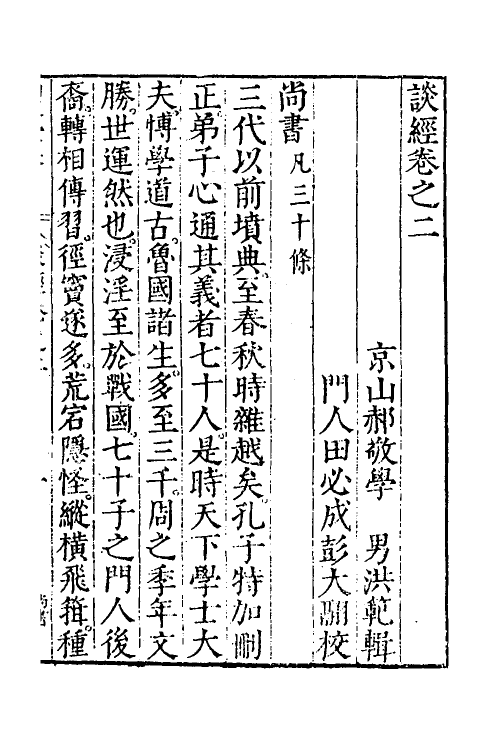 談經卷之二
京山郝敬學　男洪範輯
門人田必成彭大翮校
尚書凡三十條
三代以前墳典。至春秋時雜越矣。孔子特加刪
正。弟子心通其義者七十人。是時天下學士大
夫。慱學道古。魯國諸生。多至三千。周之季年文
勝。世運然也。浸淫至於戰國。七十子之門人後
裔。轉相傳習。徑竇逐多。荒宕隱怪。縱横飛箝。種